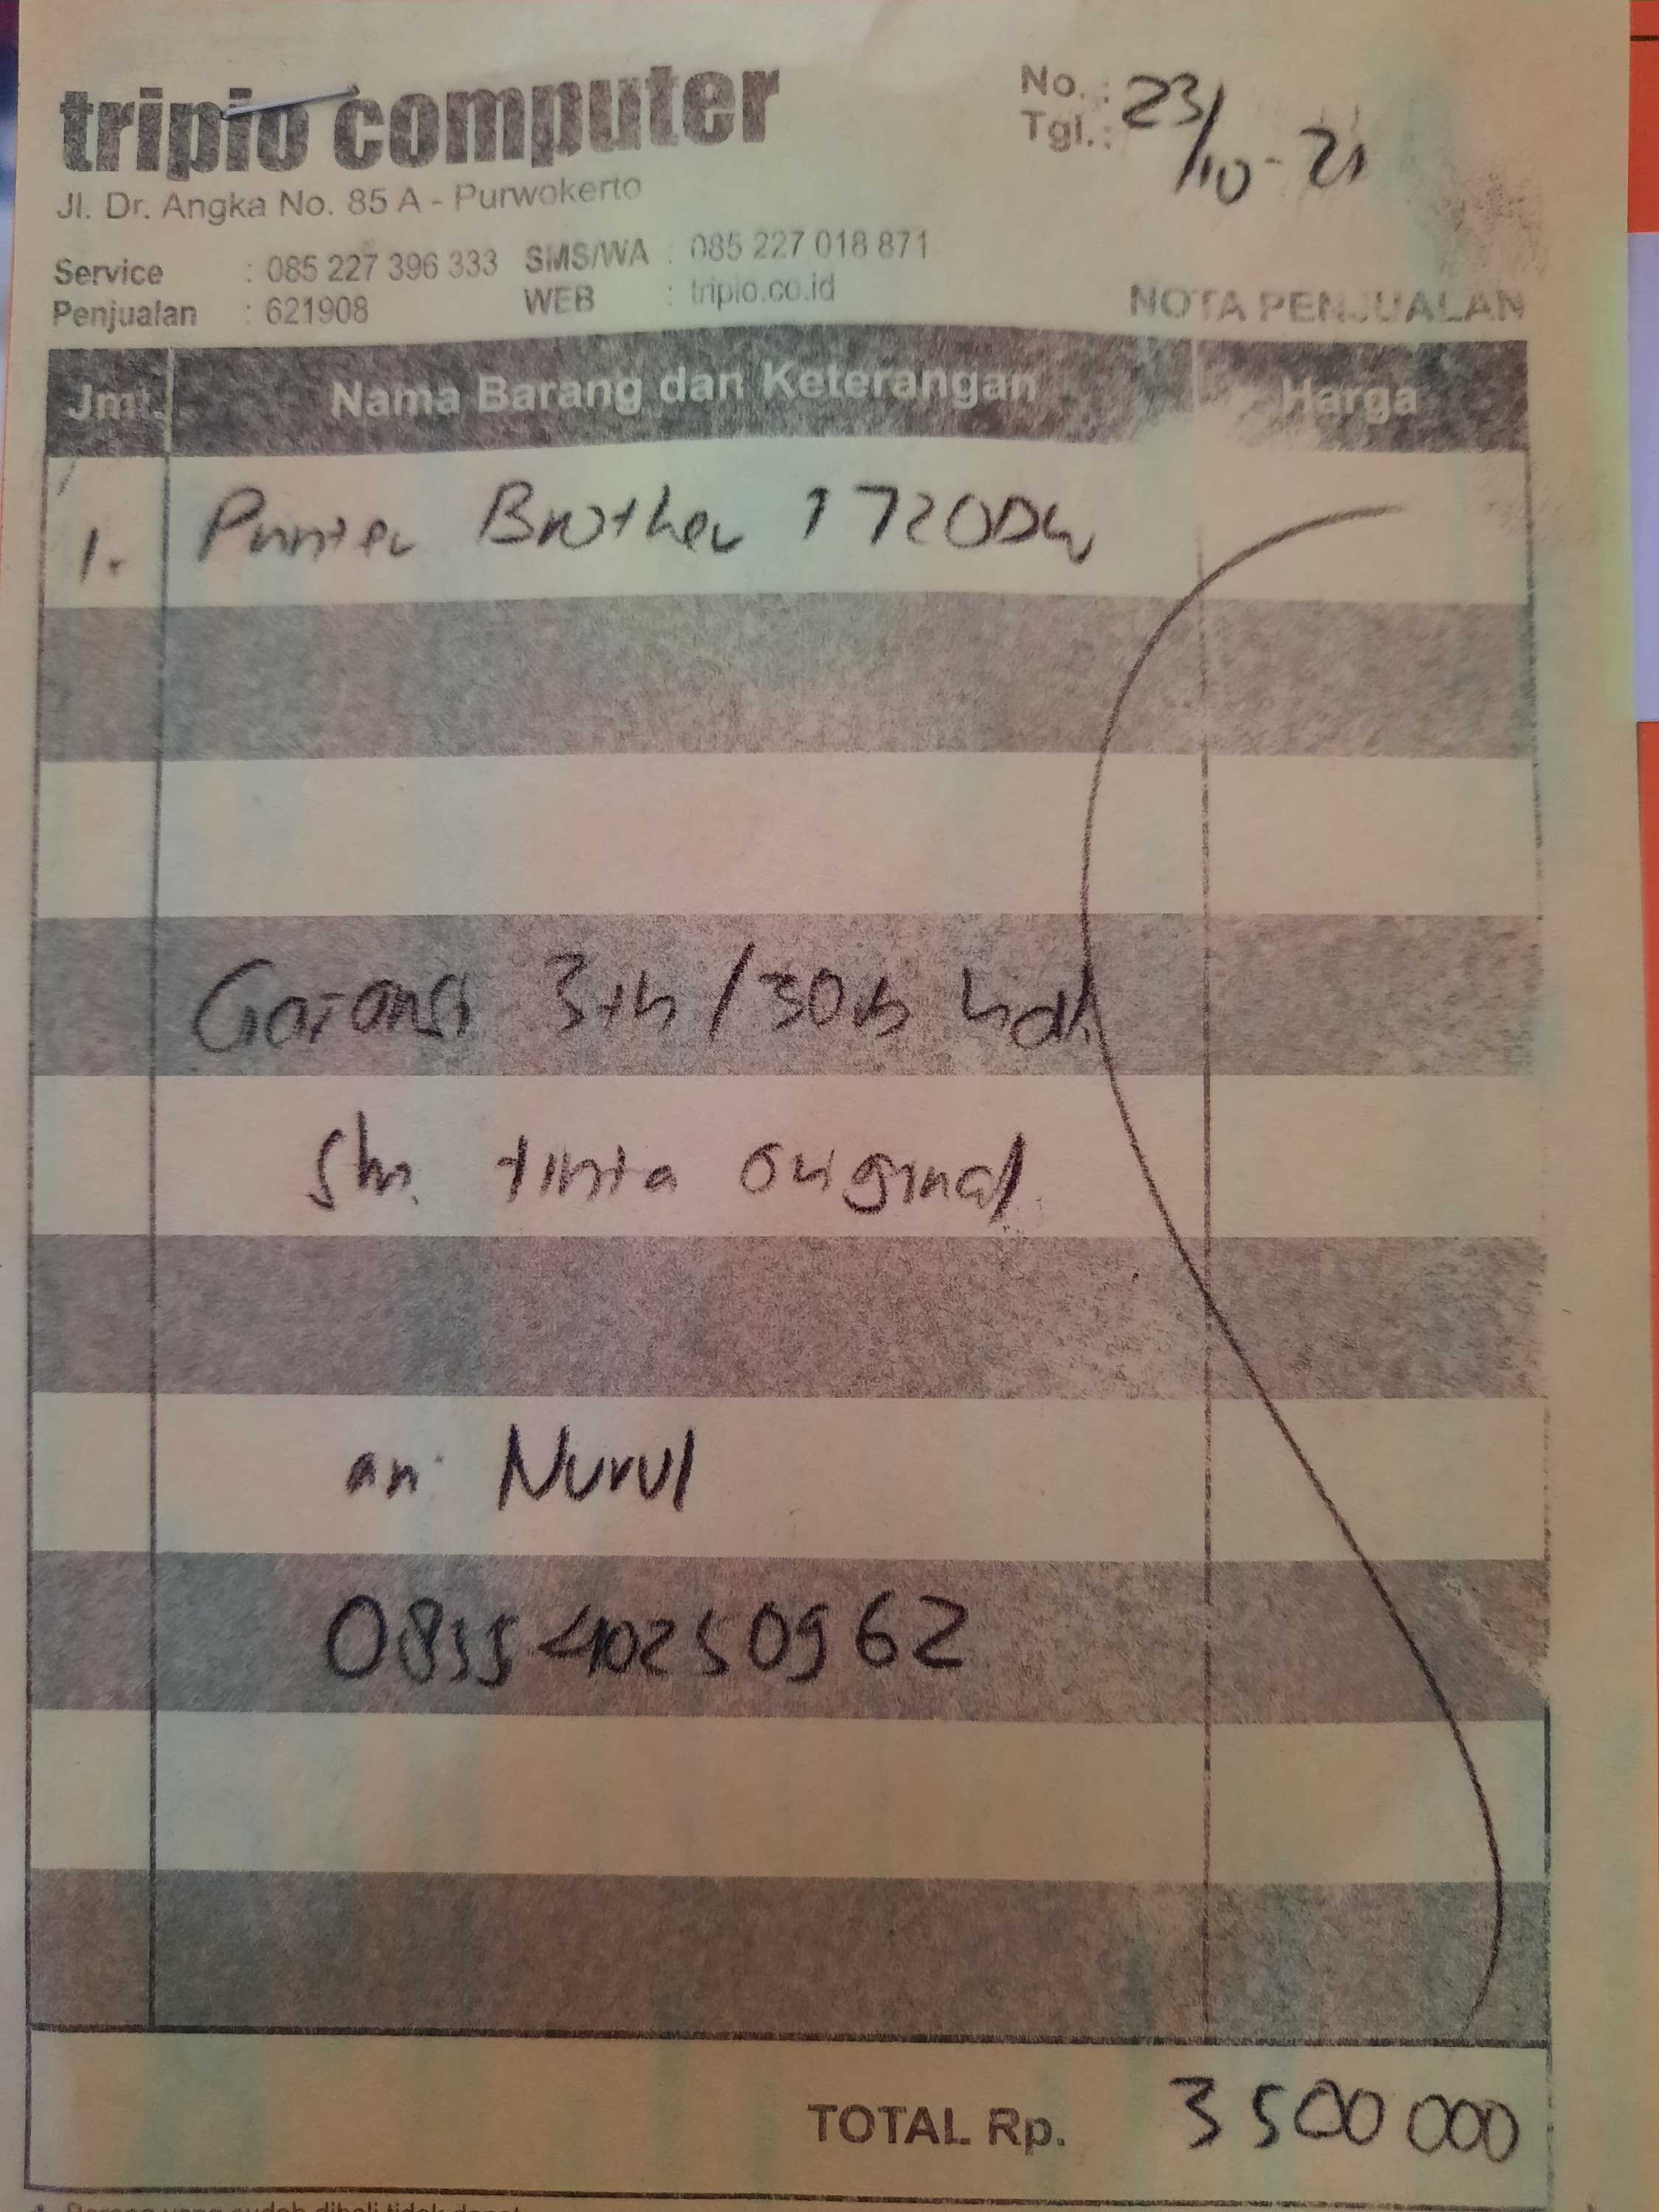 tripio computer
Jl. Dr. Angka No. 85 A - Purwokerto
Service : 085 227 396 333 SMS/WA : 085 227 018 871
Penjualan : 621908 WEB : tripio.co.id
No. :
Tgl. : 23/10-21
NOTA PENJUALAN
Jml. Nama Barang dan Keterangan Harga
1. Printer Brother T720DW
Garansi 3th/30rb hal
Shn. tinta original
an. Nurul
085540250962
TOTAL Rp. 3500 000
Barang yang sudah dibeli tidak dapat